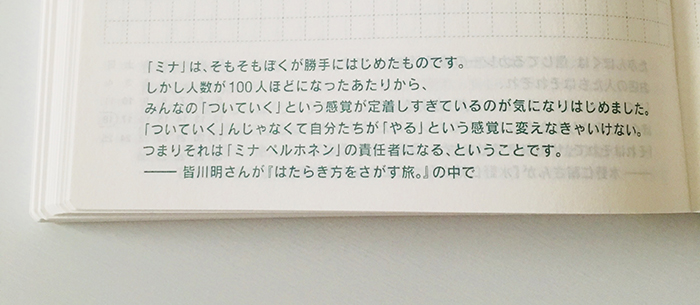 「ミナ」は、そもそもぼくが勝手にはじめたものです。
しかし人数が100人ほどになったあたりから、
みんなの「ついていく」という感覚が定着しすぎているのが気になりはじめました。
「ついていく」んじゃなくて自分たちが「やる」という感覚に変えなきゃいけない。
つまりそれは「ミナ ペルホネン」の責任者になる、ということです。
―― 皆川明さんが『はたらき方をさがす旅。』の中で